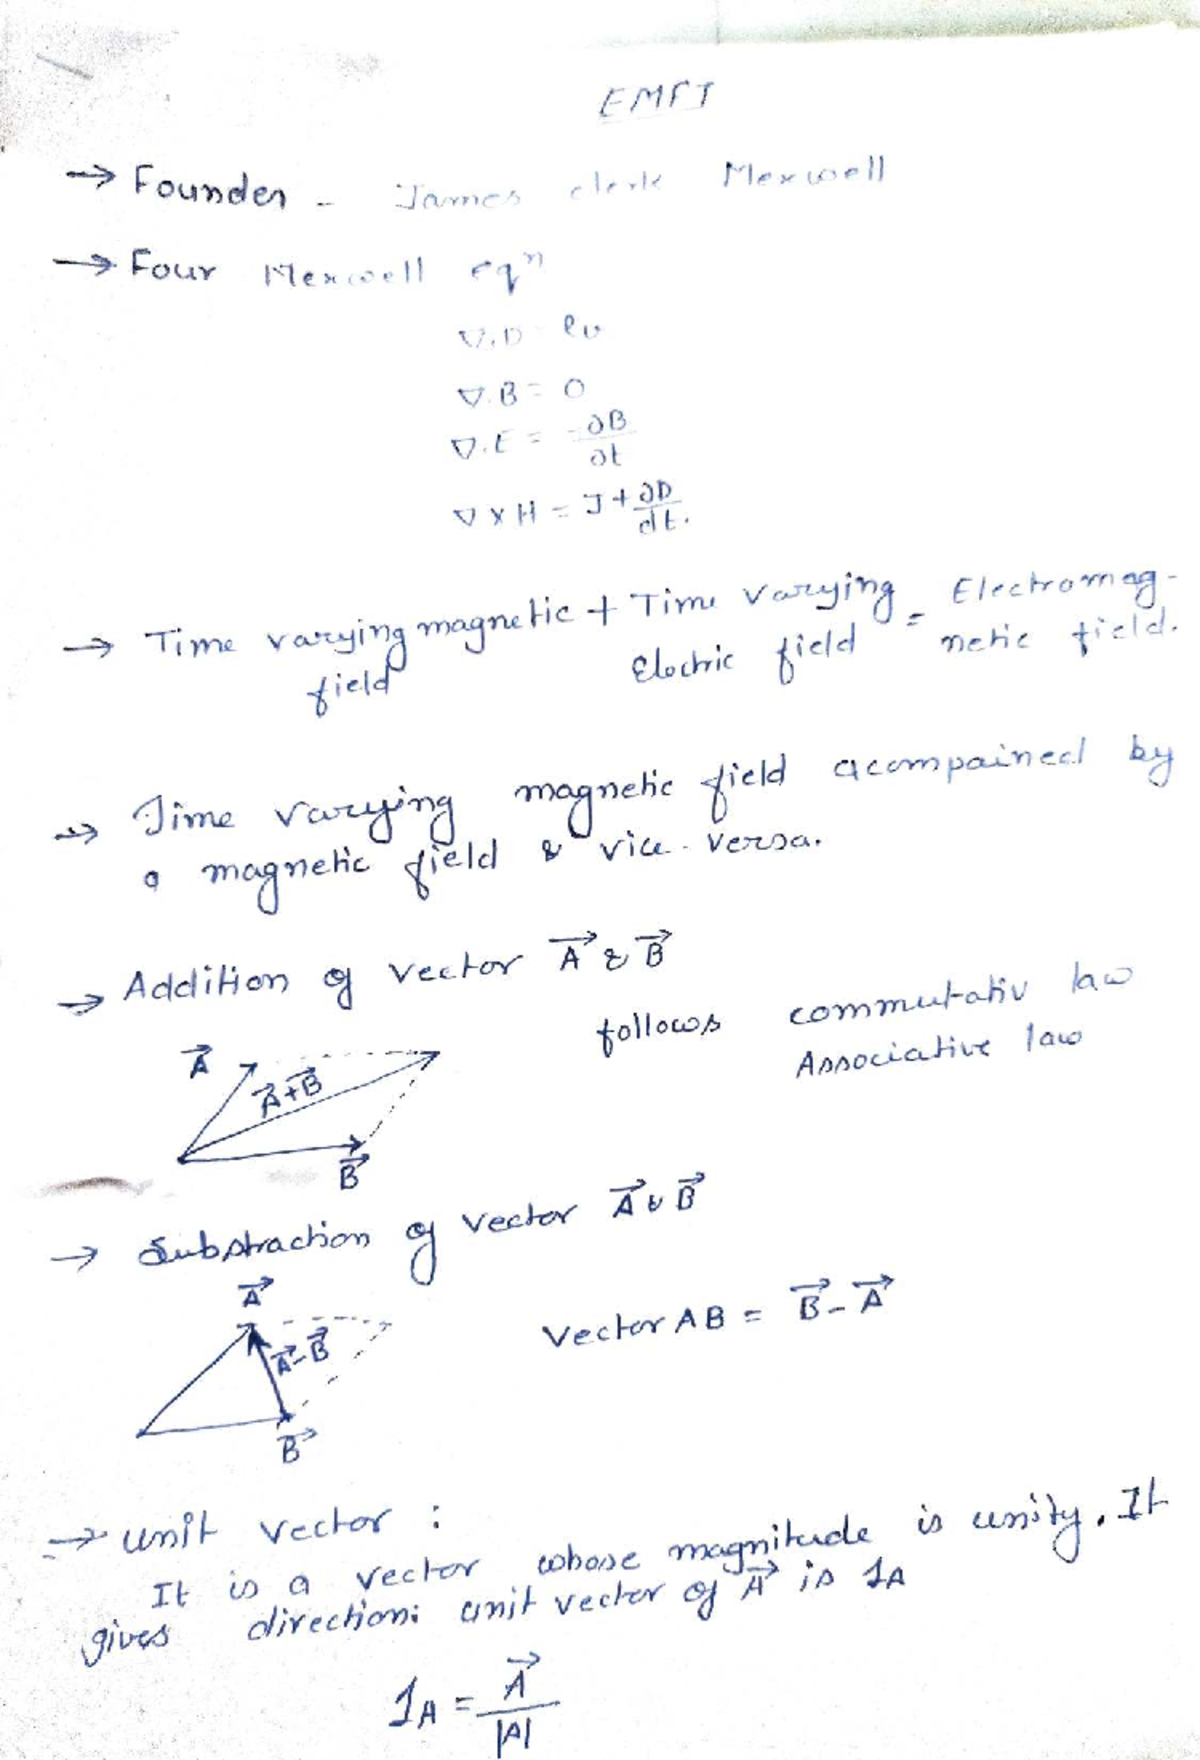 EMFT
→ Founder - James clerk Mexwell
→ Four Mexwell eqⁿ
∇.D = ρv
∇.B = 0
∇.E = -∂B/∂t
∇ × H = J + ∂D/dt.
→ Time varying magnetic + Time varying = Electromag-
field Electric field netic field.
→ Time varying magnetic field acompained by
a magnetic field & vice-versa.
→ Addition of vector A⃗ & B⃗
follows commutativ law
Associative law
A⃗
A⃗+B⃗
B⃗
→ Substraction of vector A⃗ & B⃗
A⃗
A⃗-B⃗
B⃗
Vector AB = B⃗ - A⃗
→ unit vector :
It is a vector whose magnitude is unity. It
gives direction: unit vector of A⃗ is 1A
1A = A⃗/|A|